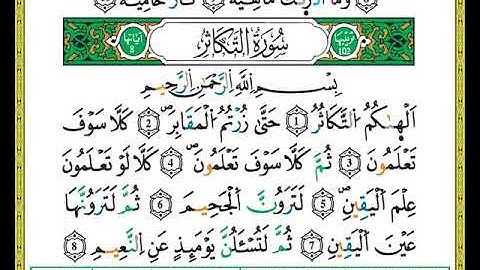 وَمَا أَدْرَىٰكَ مَاهِيَهْ نَارٌ حَامِيَةٌ
ترتيبها 102 سُورَةُ التَّكَاثُرِ آياتها 8
بِسْمِ اللَّهِ الرَّحْمَٰنِ الرَّحِيمِ
اَلْهٰىكُمُ التَّكَاثُرُ 1 حَتّٰى زُرْتُمُ الْمَقَابِرَ 2 كَلَّا سَوْفَ
تَعْلَمُونَ 3 ثُمَّ كَلَّا سَوْفَ تَعْلَمُونَ 4 كَلَّا لَوْ تَعْلَمُونَ
عِلْمَ الْيَقِينِ 5 لَتَرَوُنَّ الْجَحِيمَ 6 ثُمَّ لَتَرَوُنَّهَا
عَيْنَ الْيَقِينِ 7 ثُمَّ لَتُسْـَٔلُنَّ يَوْمَئِذٍ عَنِ النَّعِيمِ 8